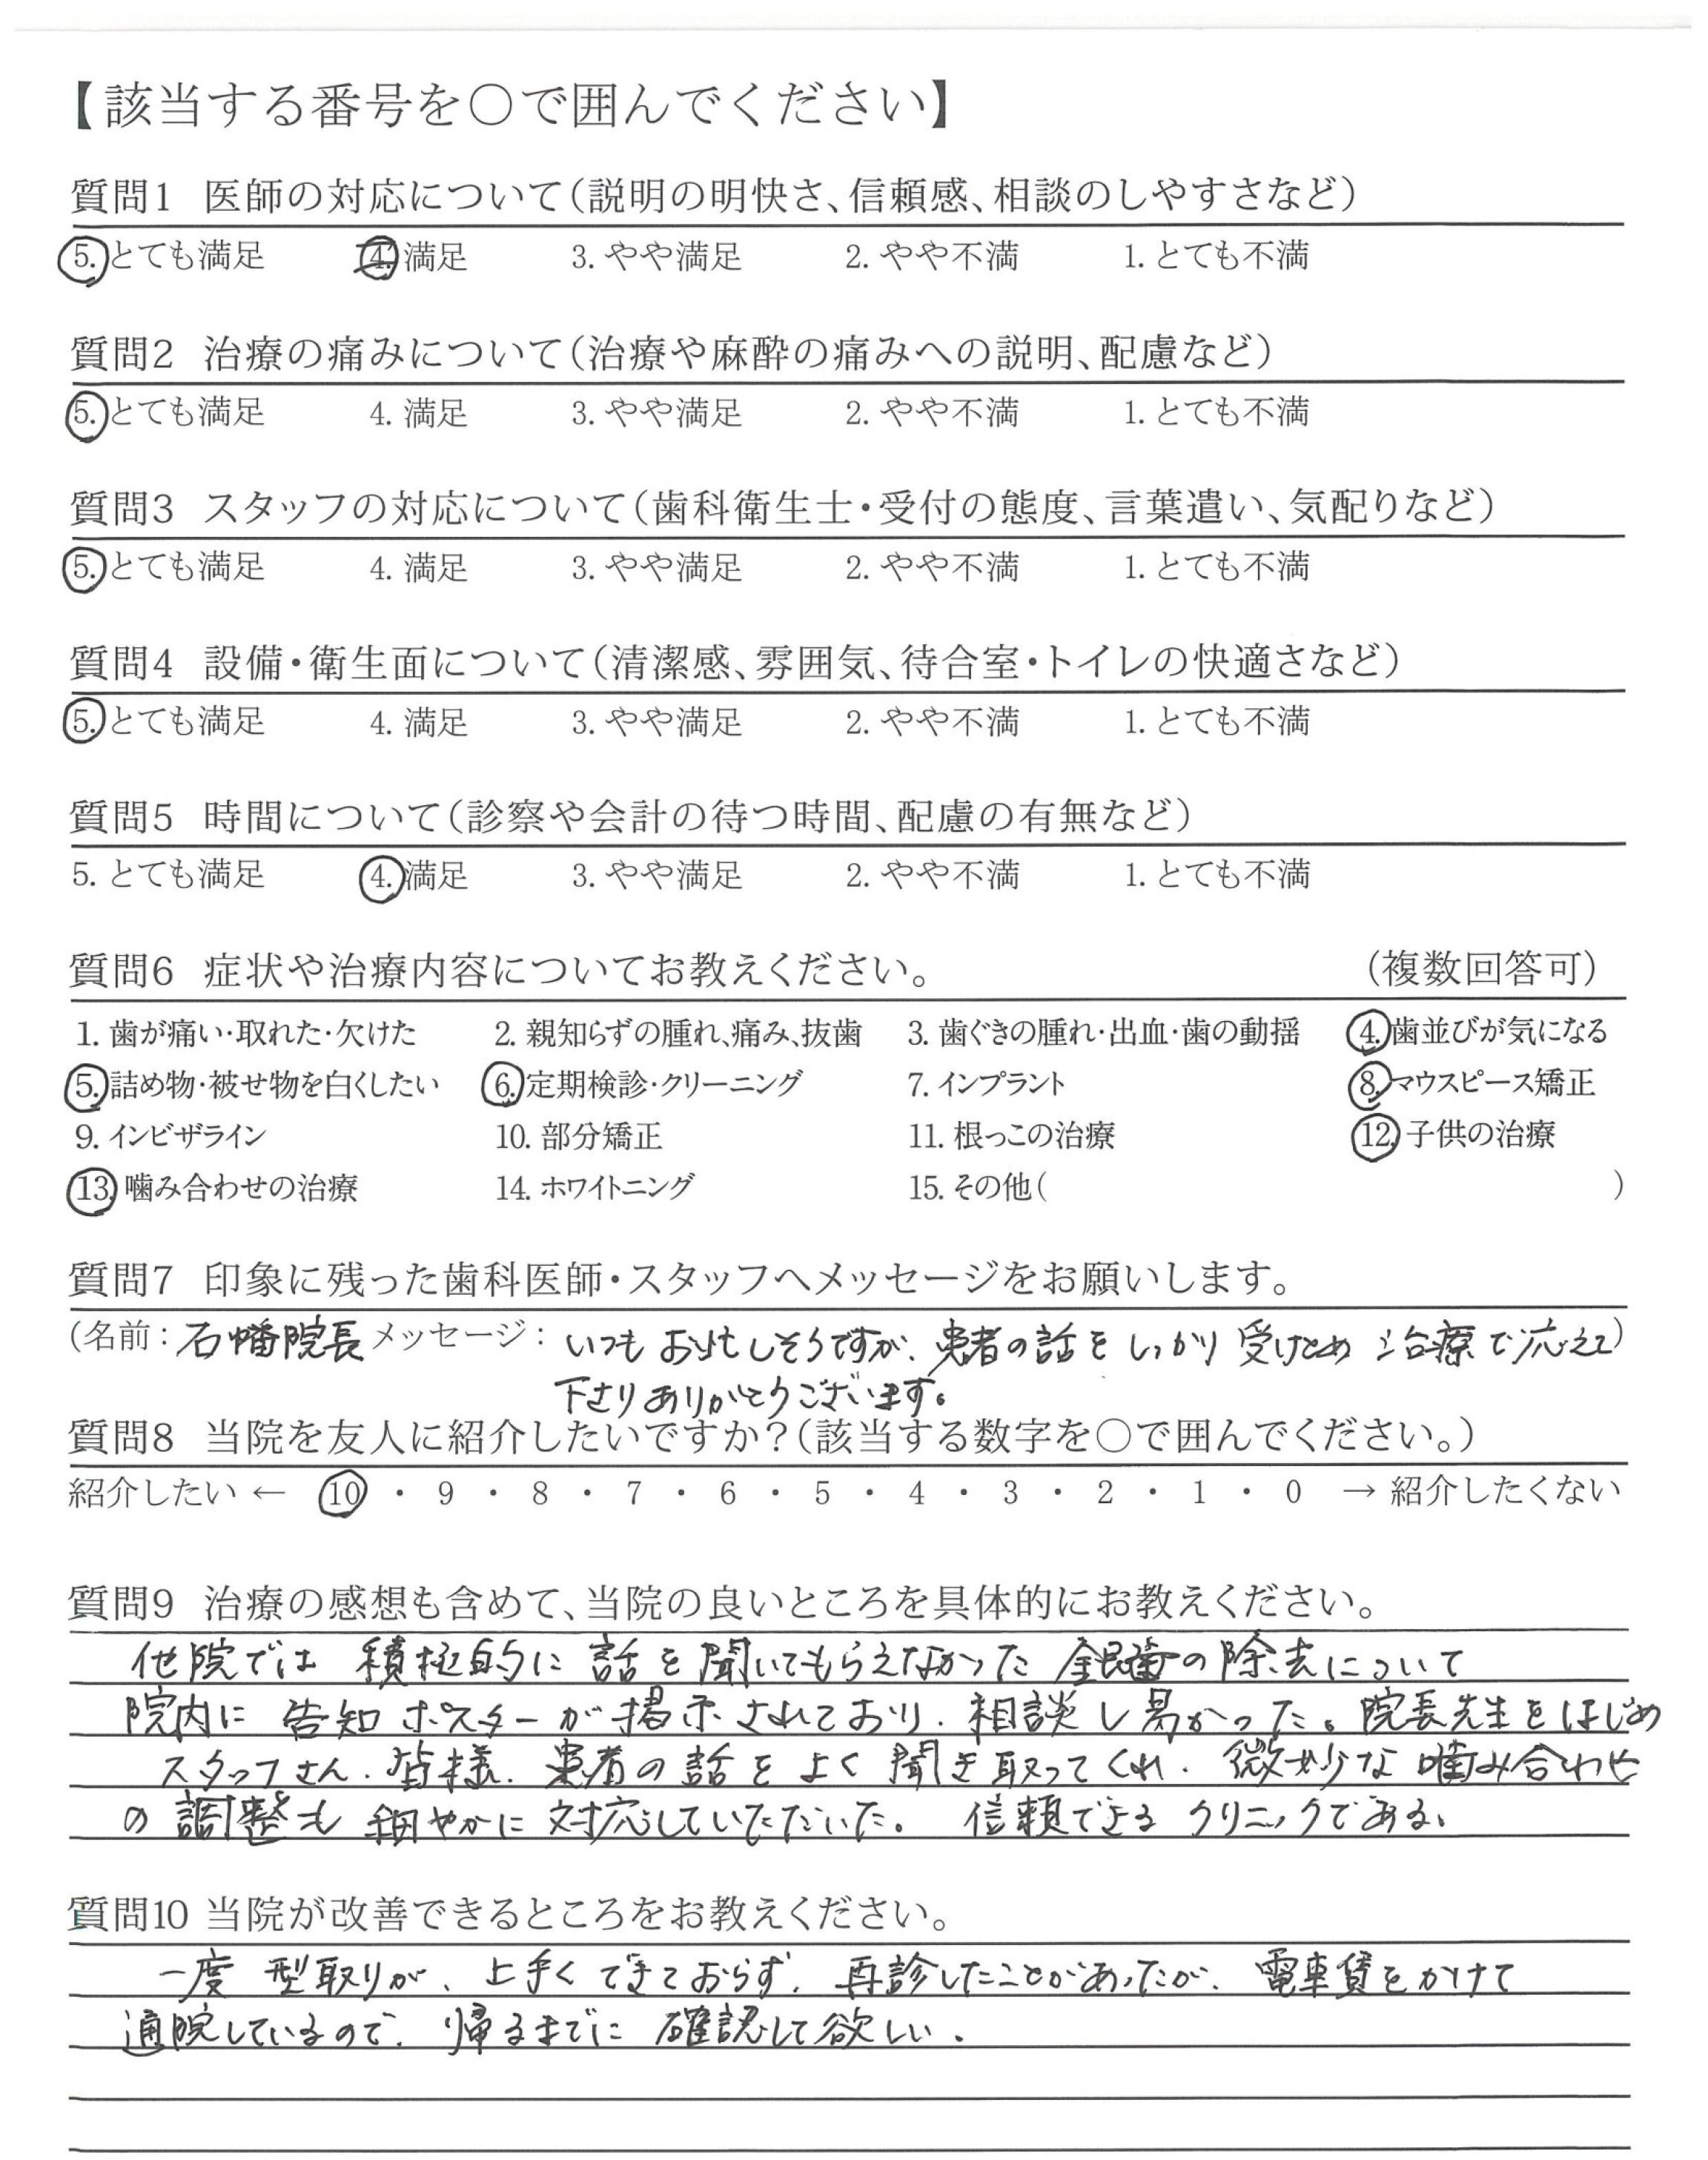 【該当する番号を○で囲んでください】
質問1 医師の対応について(説明の明快さ、信頼感、相談のしやすさなど)
5. とても満足 4. 満足 3. やや満足 2. やや不満 1. とても不満
質問2 治療の痛みについて(治療や麻酔の痛みへの説明、配慮など)
5. とても満足 4. 満足 3. やや満足 2. やや不満 1. とても不満
質問3 スタッフの対応について(歯科衛生士・受付の態度、言葉遣い、気配りなど)
5. とても満足 4. 満足 3. やや満足 2. やや不満 1. とても不満
質問4 設備・衛生面について(清潔感、雰囲気、待合室・トイレの快適さなど)
5. とても満足 4. 満足 3. やや満足 2. やや不満 1. とても不満
質問5 時間について(診察や会計の待つ時間、配慮の有無など)
5. とても満足 4. 満足 3. やや満足 2. やや不満 1. とても不満
質問6 症状や治療内容についてお教えください。 (複数回答可)
1. 歯が痛い・取れた・欠けた 2. 親知らずの腫れ、痛み、抜歯 3. 歯ぐきの腫れ・出血・歯の動揺 4. 歯並びが気になる
5. 詰め物・被せ物を白くしたい 6. 定期検診・クリーニング 7. インプラント 8. マウスピース矯正
9. インビザライン 10. 部分矯正 11. 根っこの治療 12. 子供の治療
13. 噛み合わせの治療 14. ホワイトニング 15. その他( )
質問7 印象に残った歯科医師・スタッフへメッセージをお願いします。
(名前：石幡院長 メッセージ：いつもお忙しそうですが、患者の話をしっかり受けとめ治療で応えて)
下さりありがとうございます。
質問8 当院を友人に紹介したいですか？(該当する数字を○で囲んでください。)
紹介したい ← 10 ・ 9 ・ 8 ・ 7 ・ 6 ・ 5 ・ 4 ・ 3 ・ 2 ・ 1 ・ 0 → 紹介したくない
質問9 治療の感想も含めて、当院の良いところを具体的にお教えください。
他院では積極的に話を聞いてもらえなかった銀歯の除去について
院内に告知ポスターが掲示されており、相談し易かった。院長先生をはじめ
スタッフさん、皆様、患者の話をよく聞き取ってくれ、微妙な噛み合わせ
の調整も細やかに対応していただいた。信頼できるクリニックである。
質問10 当院が改善できるところをお教えください。
一度型取りが、上手くできておらず、再診したことがあったが、電車賃をかけて
通院しているので、帰るまでに確認して欲しい。